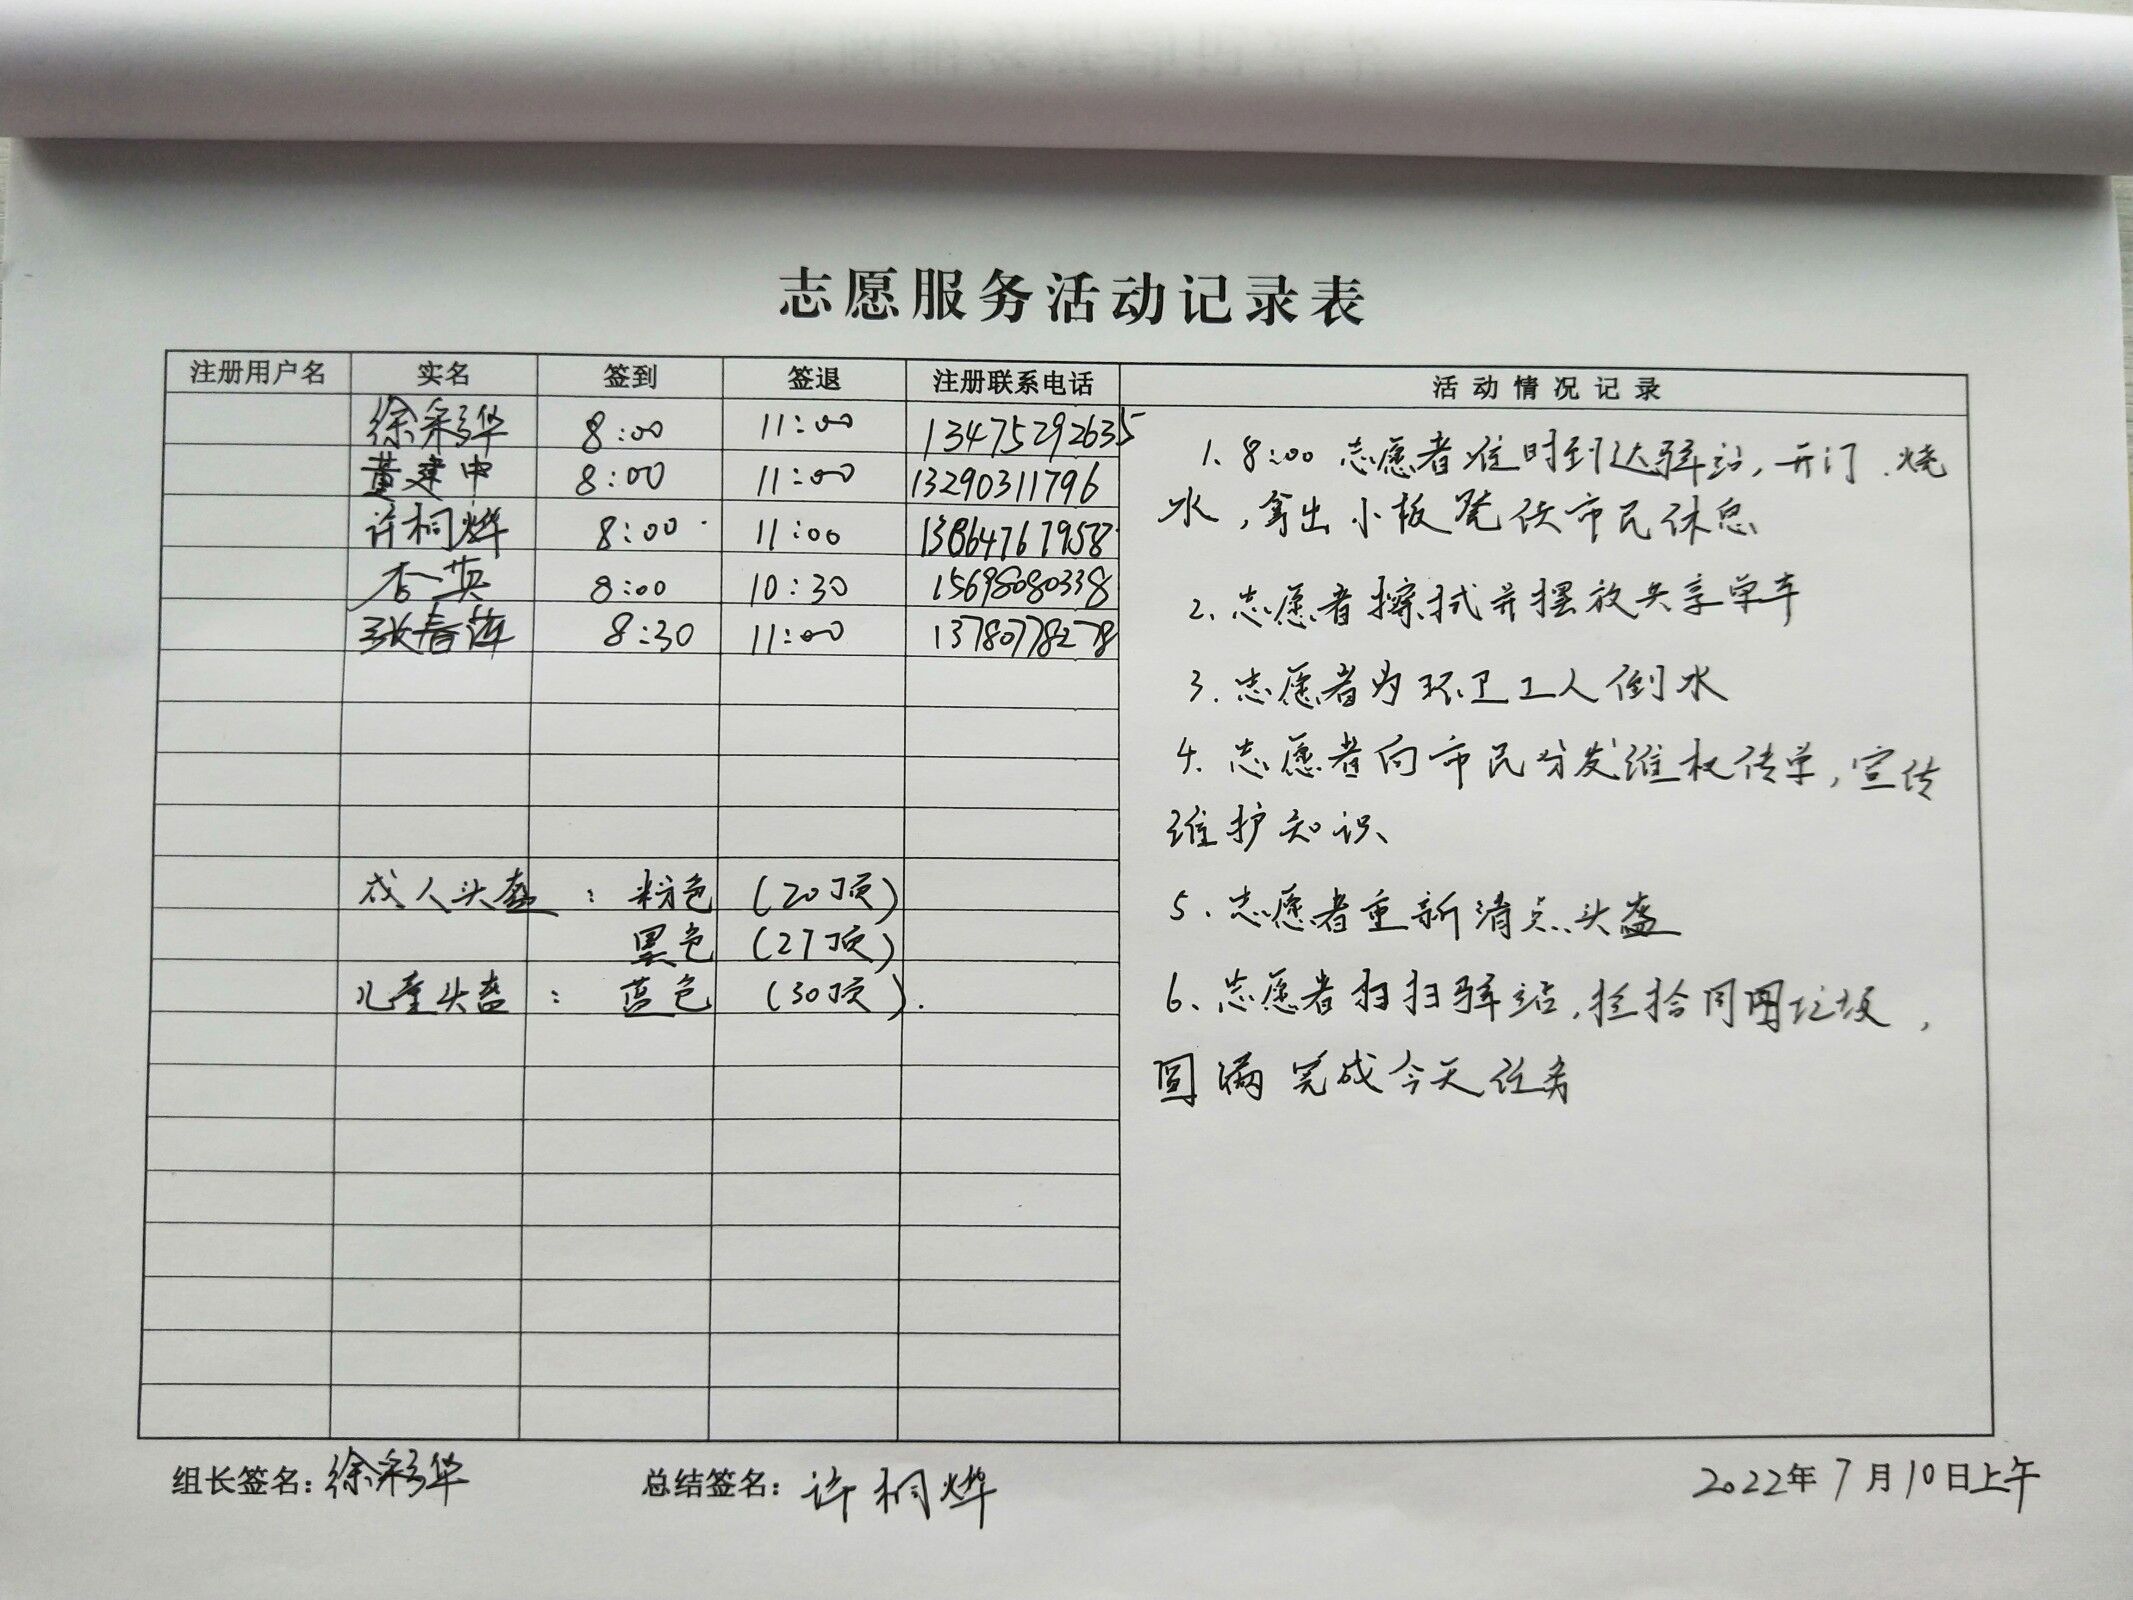 志愿服务活动记录表
注册用户名 实名 签到 签退 注册联系电话 活动情况记录
徐彩华 8:00 11:00 13475292635
董建中 8:00 11:00 13290311796
许桐烨 8:00 11:00 13864767958
杏一英 8:00 10:30 15698080338
张春莲 8:30 11:00 13780778278
成人头盔：粉色（20顶）
黑色（27顶）
儿童头盔：蓝色（30顶）.
1、8:00志愿者准时到达驿站，开门、烧
水，拿出小板凳供市民休息
2、志愿者擦拭并摆放共享单车
3、志愿者为环卫工人倒水
4、志愿者向市民分发维权传单，宣传
维护知识、
5、志愿者重新清点头盔
6、志愿者打扫驿站，捡拾周围垃圾，
圆满完成今天任务
组长签名：徐彩华 总结签名：许桐烨 2022年7月10日上午